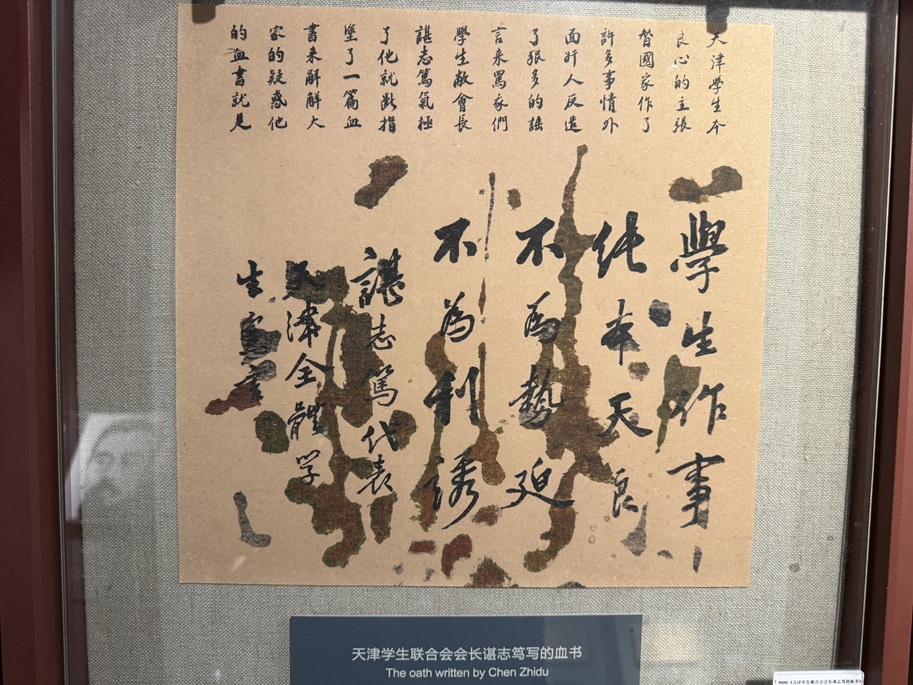 天津學生本
良心的主張
替國家作了
許多事情外
面奸人反造
了狠多的謡
言来罵我們
學生敝會長
諶志篤氣極
了他就断指
塗了一篇血
書来解解大
家的疑惑他
的血書就是
學生作事
純本天良
不為勢廹
不為利誘
諶志篤代表
天津全體学
生宣言
天津学生联合会会长谌志笃写的血书
The oath written by Chen Zhidu